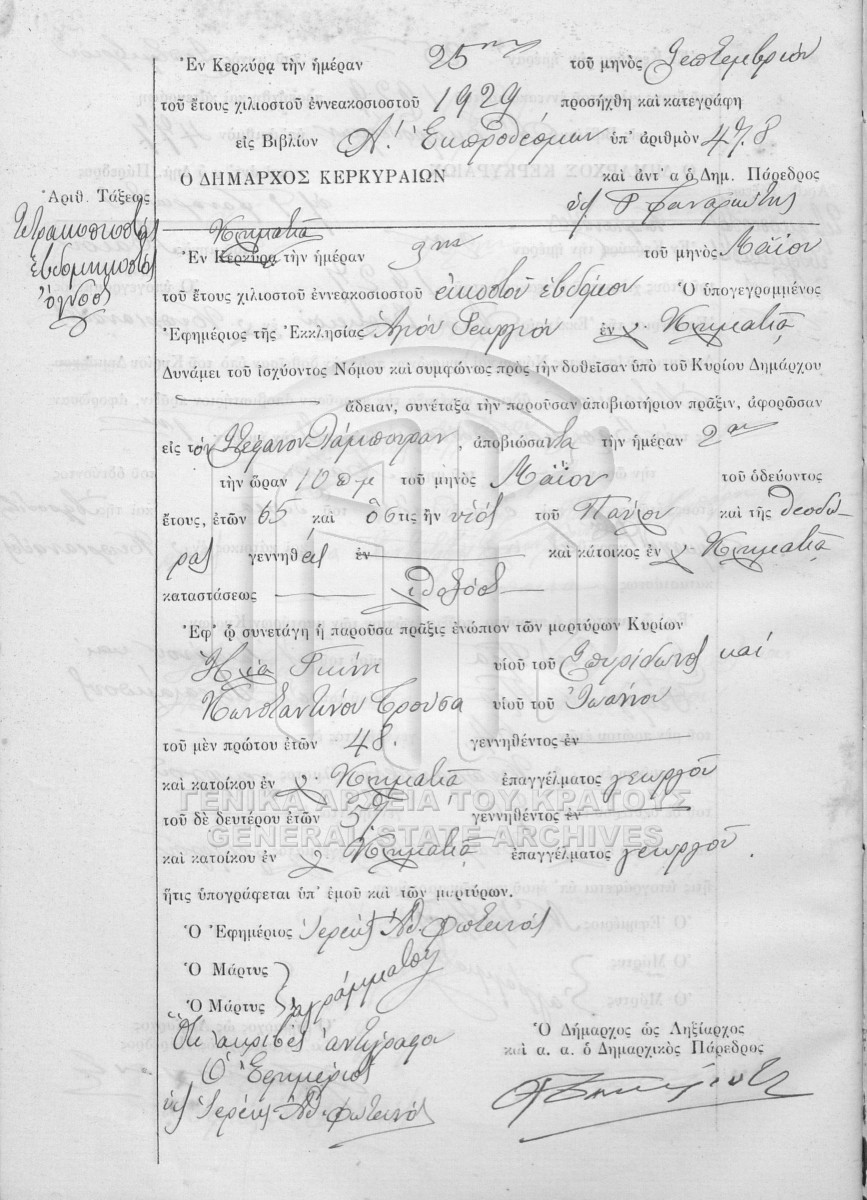 Ἐν Κερκύρᾳ τὴν ἡμέραν 25ην τοῦ μηνὸς Σεπτεμβρίου
τοῦ ἔτους χιλιοστοῦ ἐννεακοσιοστοῦ 1929 προσήχθη καὶ κατεγράφη
εἰς Βιβλίον Α! Ἐκπροθέσμων ὑπ' ἀριθμὸν 478
Ο ΔΗΜΑΡΧΟΣ ΚΕΡΚΥΡΑΙΩΝ καὶ ἀντ' α ὁ Δημ. Πάρεδρος
Ἀριθ. Τάξεως
Τετρακοσιοστὸς
ἑβδομηκοστὸς
ὄγδοος
Κρηματιᾷ
Ἐν Κερκύρᾳ τὴν ἡμέραν 3ην τοῦ μηνὸς Μαΐου
τοῦ ἔτους χιλιοστοῦ ἐννεακοσιοστοῦ εἰκοστοῦ ἑβδόμου Ὁ ὑπογεγραμμένος
Ἐφημέριος τῆς Ἐκκλησίας Ἁγίου Γεωργίου ἐν χ. Κρηματιᾷ
Δυνάμει τοῦ ἰσχύοντος Νόμου καὶ συμφώνως πρὸς τὴν δοθεῖσαν ὑπὸ τοῦ Κυρίου Δημάρχου
ἄδειαν, συνέταξα τὴν παροῦσαν ἀποβιωτήριον πρᾶξιν, ἀφορῶσαν
εἰς τὸν Στέφανον Λάμπουραν, ἀποβιώσαντα τὴν ἡμέραν 2αν
τὴν ὥραν 10 π.μ τοῦ μηνὸς Μαΐου τοῦ ὁδεύοντος
ἔτους, ἐτῶν 65 καὶ ὅστις ἦν υἱὸς τοῦ Παύλου καὶ τῆς Θεοδώ-
ρας γεννηθεὶς ἐν καὶ κάτοικος ἐν χ. Κρηματιᾷ
καταστάσεως
Ἐφ' ᾧ συνετάγη ἡ παροῦσα πρᾶξις ἐνώπιον τῶν μαρτύρων Κυρίων
Ἠλία Γκίνη υἱοῦ τοῦ Σπυρίδωνος καὶ
Κωνσταντίνου Τρούσα υἱοῦ τοῦ Ἰωάννου
τοῦ μὲν πρώτου ἐτῶν 48. γεννηθέντος ἐν
καὶ κατοίκου ἐν χ. Κρηματιᾷ ἐπαγγέλματος γεωργοῦ
ΓΕΝΙΚΑ ΑΡΧΕΙΑ ΤΟΥ ΚΡΑΤΟΥΣ
τοῦ δὲ δευτέρου ἐτῶν 57 γεννηθέντος ἐν
GENERAL STATE ARCHIVES
καὶ κατοίκου ἐν χ. Κρηματιᾷ ἐπαγγέλματος γεωργοῦ.
ἥτις ὑπογράφεται ὑπ' ἐμοῦ καὶ τῶν μαρτύρων.
Ὁ Ἐφημέριος Ἱερεὺς Ἀθ. Φωτεινὸς
Ὁ Μάρτυς
Ὁ Μάρτυς ἀγράμματοι
Ὅτι ἀκριβὲς ἀντίγραφο
Ὁ Ἐφημέριος
Ἱερεὺς Ἀθ. Φωτεινός
Ὁ Δήμαρχος ὡς Ληξίαρχος
καὶ α. α. ὁ Δημαρχικὸς Πάρεδρος